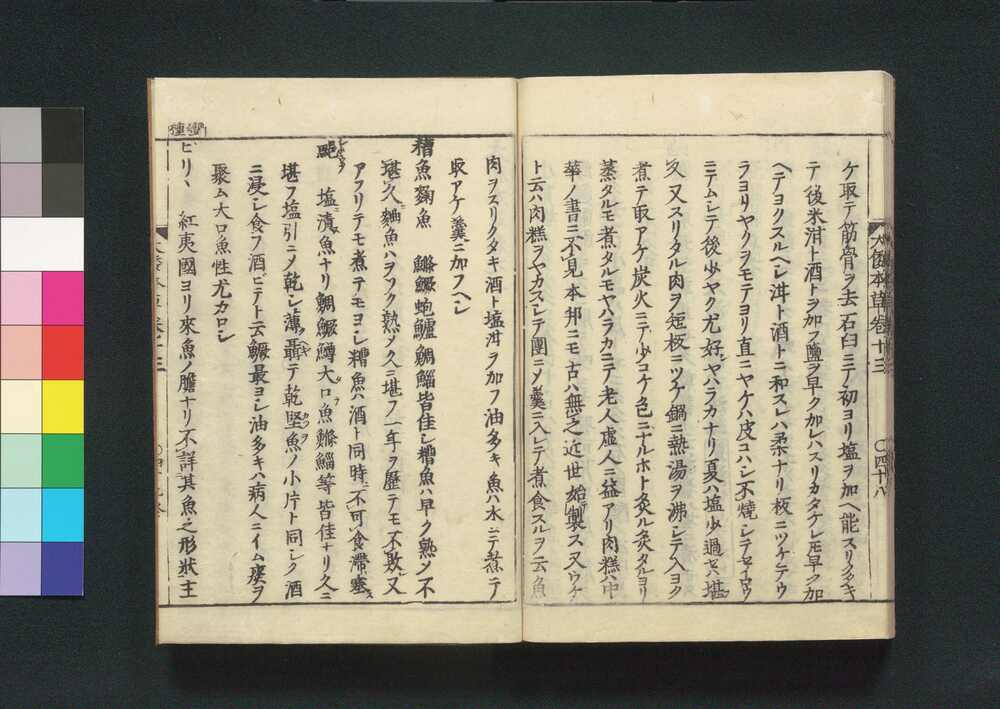 ケ取テ筋骨ヲ去石臼ニテ初ヨリ塩ヲ加ヘ能スリクタキ
テ後米泔ト酒トヲ加フ鹽ヲ早ク加レハスリカタケレ𪜈早ク加
ヘテヨクスルヘシ泔ト酒トニ和スレハ柔ナリ板ニツケテウ
ラヨリヤクヲモテヨリ直ニヤケハ皮コハシ不焼シテセイロウ
ニテムシテ後少ヤク尤好シヤハラカナリ夏ハ塩少過セハ堪
久又スリタル肉ヲ短板ニツケ鍋ニ熱湯ヲ沸シテ入ヨク
煮テ取アケ炭火ニテ少コケ色ニナルホト炙ル炙タルヨリ
蒸タルモ煮タルモヤハラカニテ老人虚人ニ益アリ肉糕ハ中
華ノ書ニ不見本邦ニモ古ハ無之近世始製ス又ウケ
ト云ハ肉糕ヲヤカスシテ團ニメ羹ニ入レテ煮食スルヲ云魚
大倭本草卷十三
〇四十八
肉ヲスリクタキ酒ト塩泔ヲ加フ油多キ魚ハ水ニテ煮テ
取アケ羹ニ加フヘシ
糟魚麹魚 鰷鮑鱸鯛鯔皆佳シ糟魚ハ早ク熟ノ不
堪久麹魚ハヲソク熟ノ久ニ堪フ一年ヲ歴テモ不敗又
アフリテモ煮テモヨシ糟魚ハ酒ト同時ニ不可食滞塞ス
塩漬魚ナリ鯛鱖鱒大口魚鰷鯔等皆佳ナリ久ニ
堪フ塩引ニメ乾シ薄聶テ乾堅魚ノ小片ト同シク酒
ニ浸シ食フ酒ビテト云鱖最ヨシ油多キハ病人ニイム痰ヲ
聚ム大口魚性尤カロシ
蠻種
ピリヽ 紅夷國ヨリ來魚ノ膽ナリ不詳其魚之形狀主